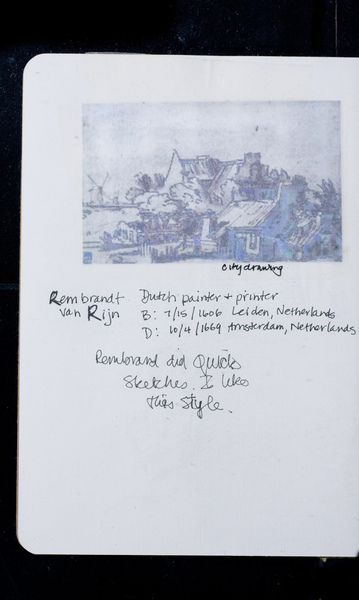 city drawing
Rembrandt Dutch painter + printer
van Rijn B: 7/15/1606 Leiden, Netherlands
D: 10/4/1669 Amsterdam, Netherlands
Rembrand did Quick
Sketches. I like
this style.